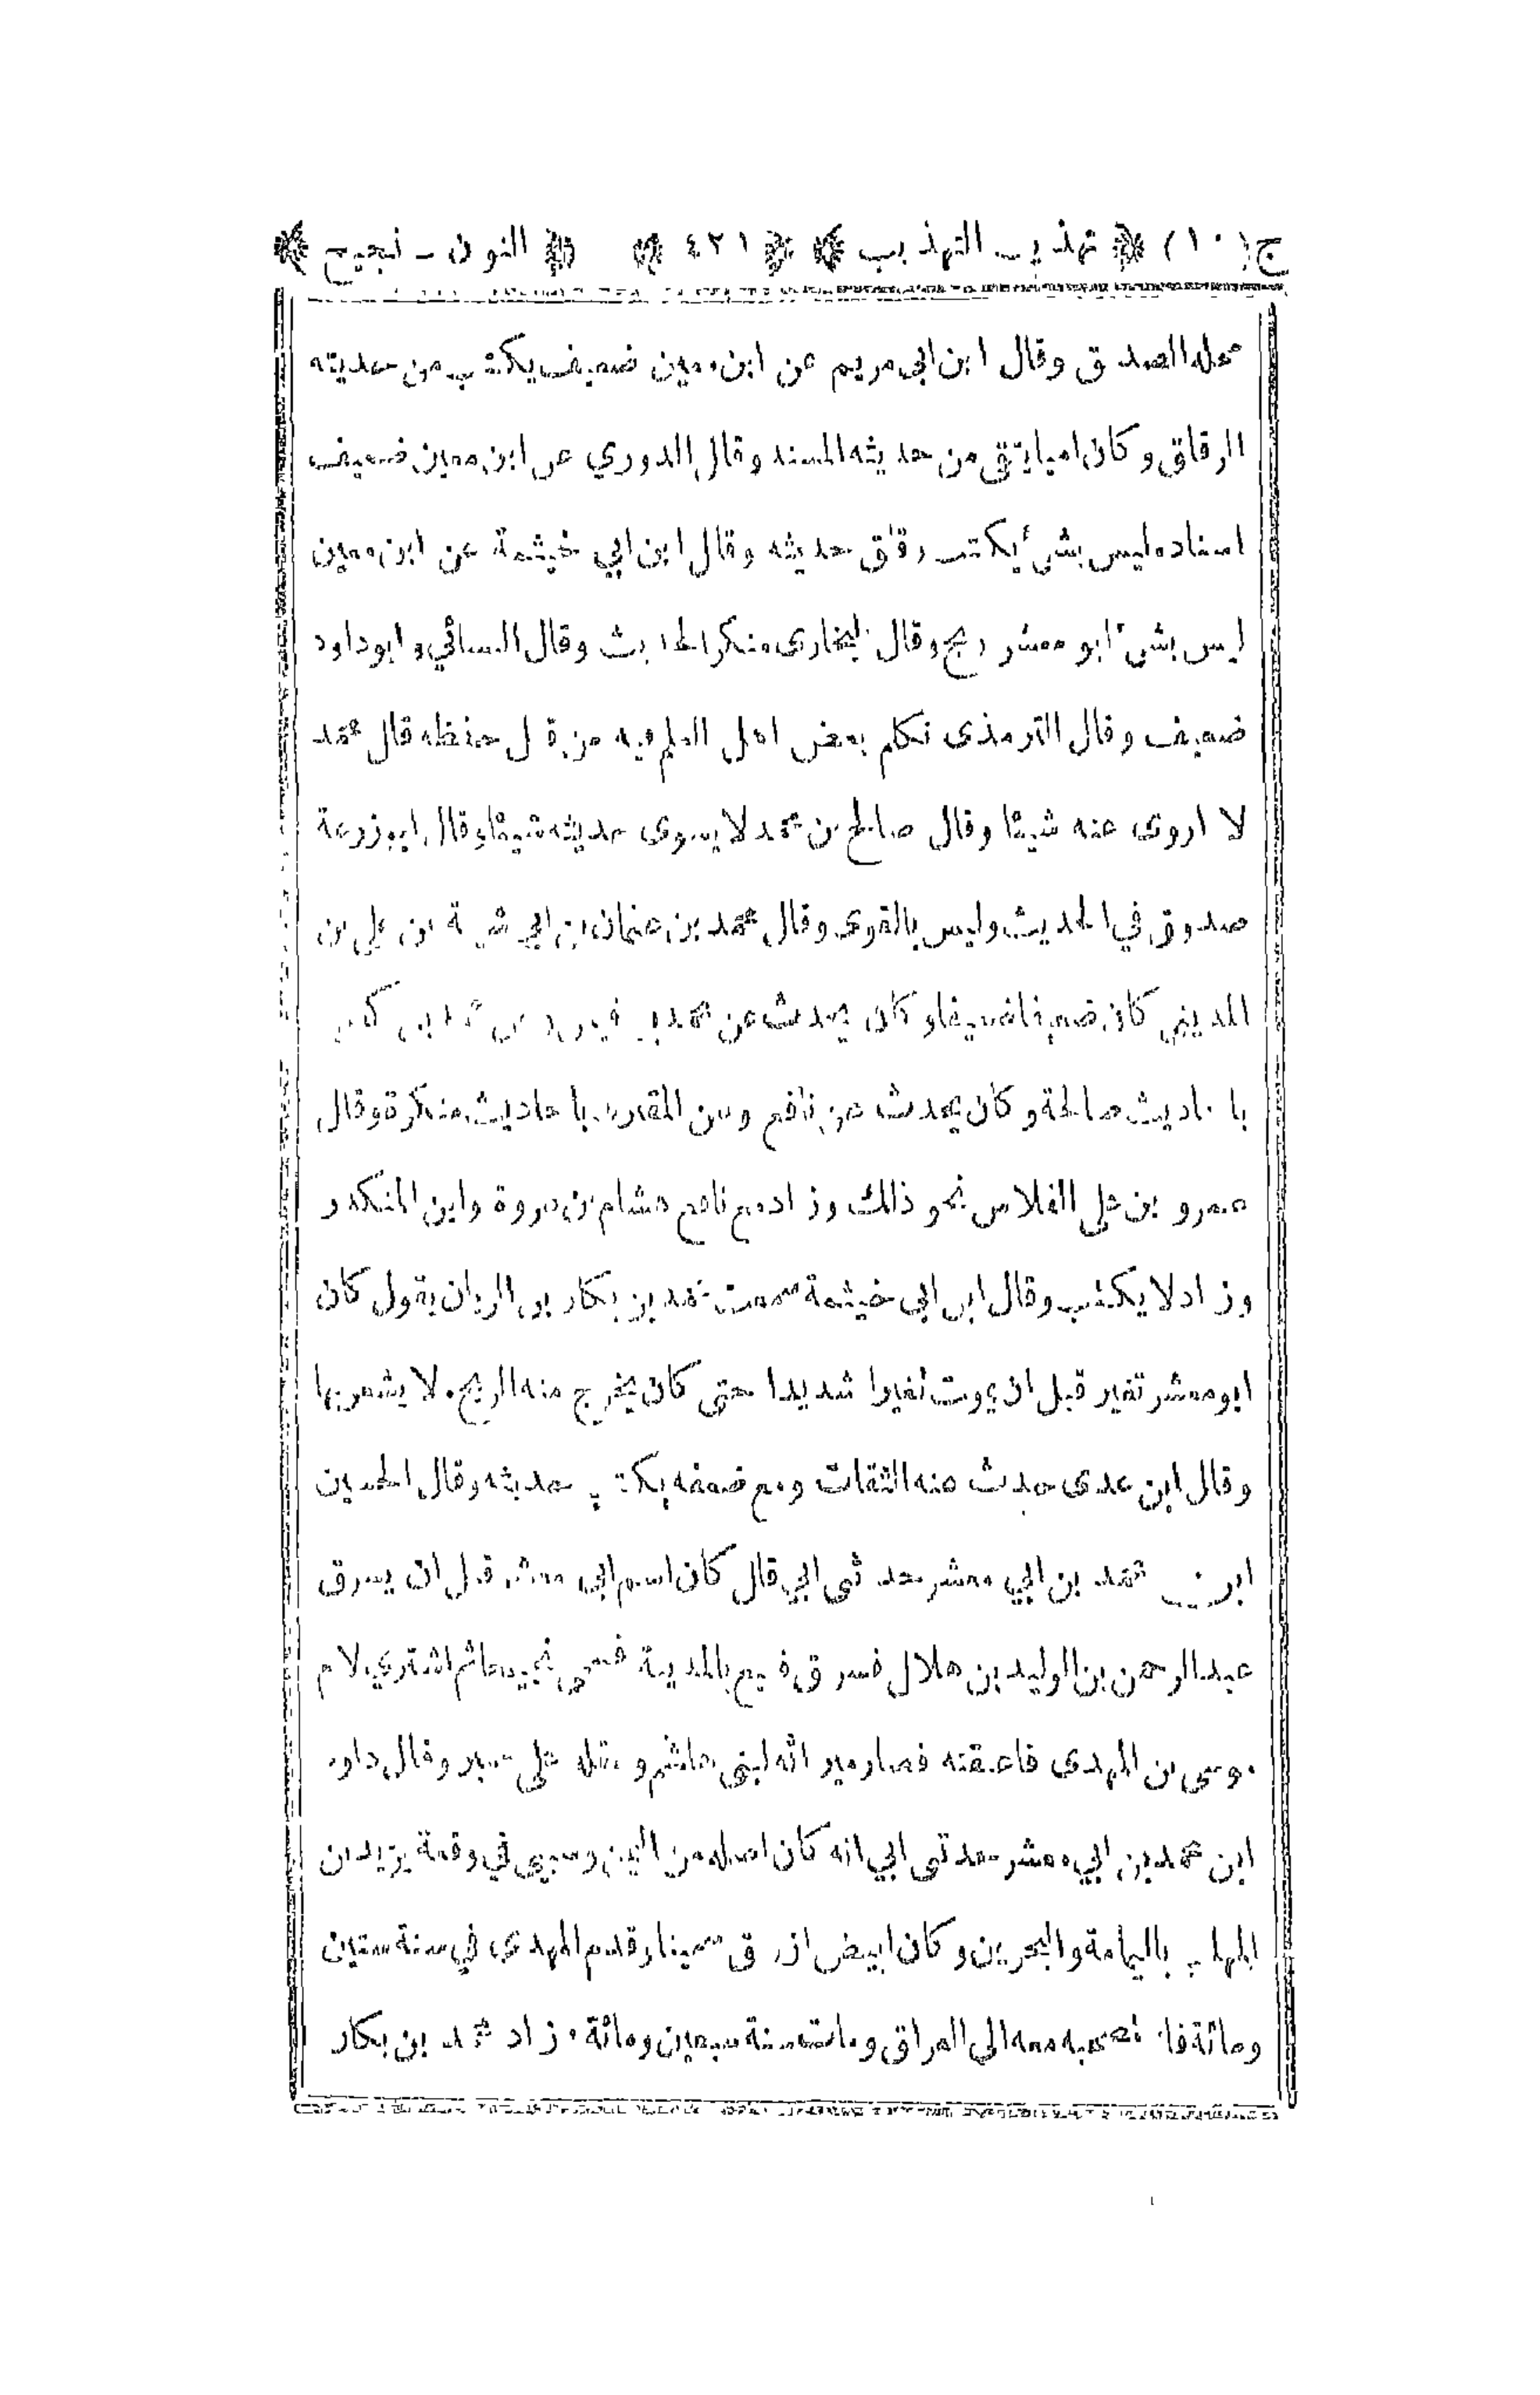 ج(١٠) تهذيب التهذيب ٤٢١ النون ـ نجيح
محله الصدق وقال ابن ابى مريم عن ابن معين ضعيف يكتب من حديثه
الرقاق وكان اميا يتقى من حديثه المسند وقال الدوري عن ابن معين ضعيف
اسناده ليس بشئ يكتب رقاق حديثه وقال ابن ابي خيثمة عن ابن معين
ليس بشئ ابو معشر ريح وقال البخارى منكر الحديث وقال النسائي وابو داود
ضعيف وقال الترمذى تكلم بعض اهل العلم فيه من قبل حفظه قال محمد
لا اروى عنه شيئا وقال صالح بن محمد لا يسوى حديثه شيئا وقال ابو زرعة
صدوق في الحديث وليس بالقوى وقال محمد بن عثمان بن ابي شيبة عن علي بن
المديني كان ضعيفا ضعيفا وكان يحدث عن محمد بن
باحاديث صالحة وكان يحدث عن نافع وعن المقبري باحاديث منكرة وقال
عمرو بن علي الفلاس نحو ذلك وزاد مع نافع هشام بن عروة وابن المنكدر
وزاد لا يكتب وقال ابن ابي خيثمة سمعت محمد بن بكار بن الريان يقول كان
ابو معشر تغير قبل ان يموت تغيرا شديدا حتى كان يخرج منه الريح ولا يشعر بها
وقال ابن عدى حدث عنه الثقات ومع ضعفه يكتب حديثه وقال الحسين
ابن محمد بن ابي معشر حدثنى ابي قال كان اسم ابي معشر قبل ان يسرق
عبد الرحمن بن الوليد بن هلال فسرق فبيع بالمدينة فسمى نجيحا ثم اشتري لام
موسى بن المهدى فاعتقته فصار ميراثه لبني هاشم وعقله على حمير وقال داود
ابن محمد بن ابي معشر حدثنى ابي انه كان اصله من اليمن وسبي في وقعة يزيد بن
المهلب باليمامة والبحرين وكان ابيض ازرق سمينا وقدم المهدى في سنة ستين
ومائة فاستصحبه معه الى العراق ومات سنة سبعين ومائة وزاد محمد بن بكار